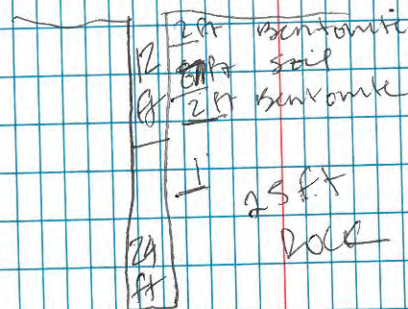 2 ft Bentonite
12 ft soil
ft 2 ft Bentonite
1
25 ft
Rock
24
ft